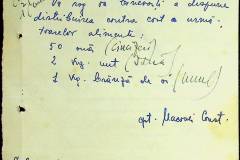 Vă rog să binevoiți a dispune
distribuirea contra cost a urmă-
toarelor alimente:
50 ouă (Cincizeci)
2 kg. unt (Două)
1 kg. brânză de oi (unul)
cpt. Macovei Const.